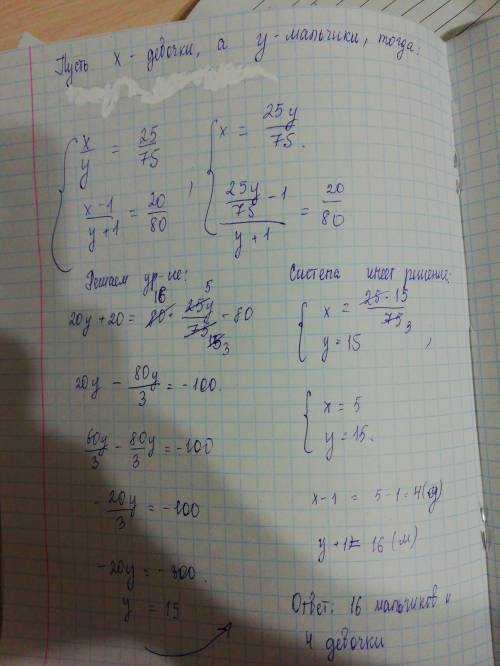 Пусть x - девочки, а y - мальчики, тогда:
{ x/y = 25/75
(x-1)/(y+1) = 20/80 ,
{ x = 25y/75.
(25y/75 - 1)/(y+1) = 20/80
Решаем ур-ие:
20y + 20 = 80 · 25y/75 - 80
16 5 15 3
20y - 80y/3 = -100.
60y/3 - 80y/3 = -100
- 20y/3 = -100
-20y = -300.
y = 15
Система имеет решения:
{ x = 25·15/75 3
y = 15 ,
{ x = 5
y = 15.
x-1 = 5-1 = 4 (д)
y+1 = 16 (м)
Ответ: 16 мальчиков и
4 девочки